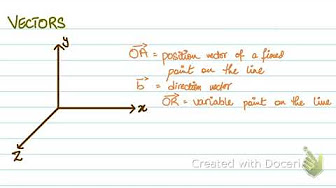 VECTORS
y
x
z
OA = position vector of a fixed
point on the line
b = direction vector
OR = variable point on the line
Created with Doceri